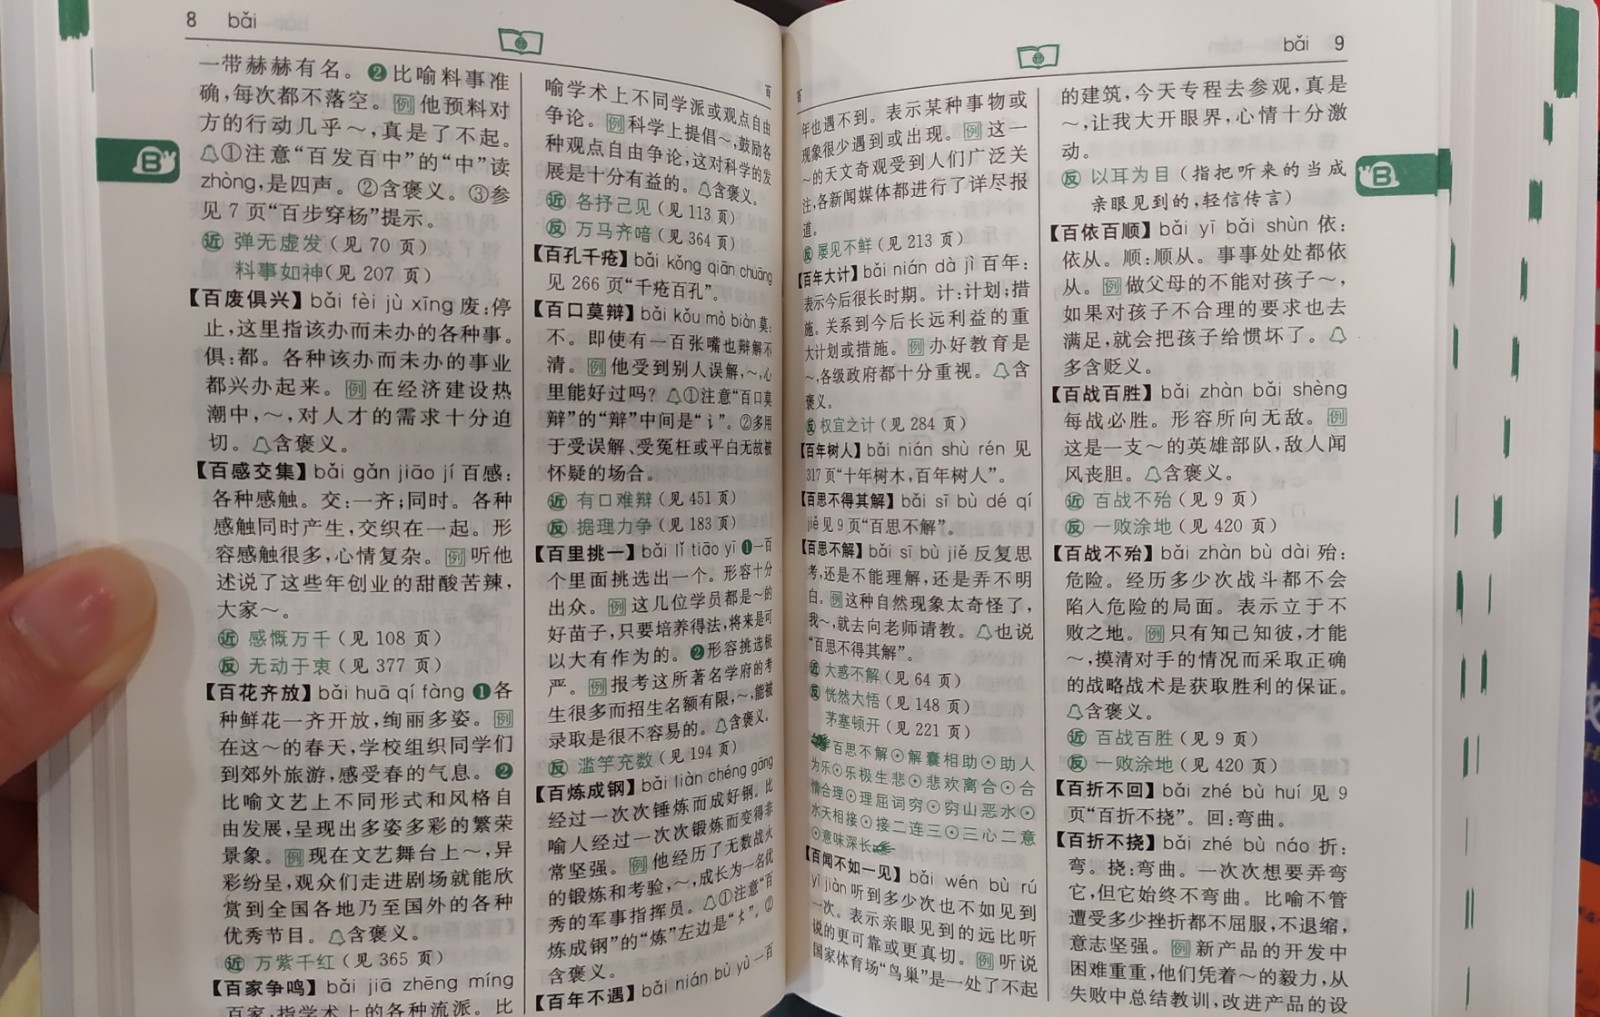 8 bǎi
一带赫赫有名。❷比喻料事准
确,每次都不落空。例他预料对
方的行动几乎～,真是了不起。
①注意“百发百中”的“中”读
zhòng,是四声。②含褒义。③参
见 7 页“百步穿杨”提示。
近 弹无虚发(见 70 页)
料事如神(见 207 页)
【百废俱兴】bǎi fèi jù xīng 废:停
止,这里指该办而未办的各种事。
俱:都。各种该办而未办的事业
都兴办起来。例在经济建设热
潮中,～,对人才的需求十分迫
切。含褒义。
【百感交集】bǎi gǎn jiāo jí 百感:
各种感触。交:一齐;同时。各种
感触同时产生,交织在一起。形
容感触很多,心情复杂。例听他
述说了这些年创业的甜酸苦辣,
大家～。
近 感慨万千(见 108 页)
反 无动于衷(见 377 页)
【百花齐放】bǎi huā qí fàng ❶各
种鲜花一齐开放,绚丽多姿。例
在这～的春天,学校组织同学们
到郊外旅游,感受春的气息。❷
比喻文艺上不同形式和风格自
由发展,呈现出多姿多彩的繁荣
景象。例现在文艺舞台上～,异
彩纷呈,观众们走进剧场就能欣
赏到全国各地乃至国外的各种
优秀节目。含褒义。
近 万紫千红(见 365 页)
【百家争鸣】bǎi jiā zhēng míng
百家:指学术上的各种流派。比
B
喻学术上不同学派或观点自由
争论。例科学上提倡～,鼓励各
种观点自由争论,这对科学的发
展是十分有益的。含褒义。
近 各抒己见(见 113 页)
反 万马齐喑(见 364 页)
【百孔千疮】bǎi kǒng qiān chuāng
见 266 页“千疮百孔”。
【百口莫辩】bǎi kǒu mò biàn 莫:
不。即使有一百张嘴也辩解不
清。例他受到别人误解,～,心
里能好过吗? ①注意“百口莫
辩”的“辩”中间是“讠”。②多用
于受误解、受冤枉或平白无故被
怀疑的场合。
近 有口难辩(见 451 页)
反 据理力争(见 183 页)
【百里挑一】bǎi lǐ tiāo yī ❶一百
个里面挑选出一个。形容十分
出众。例这几位学员都是～的
好苗子,只要培养得法,将来是可
以大有作为的。❷形容挑选极
严。例报考这所著名学府的考
生很多而招生名额有限,～,能被
录取是很不容易的。含褒义。
反 滥竽充数(见 194 页)
【百炼成钢】bǎi liàn chéng gāng
经过一次次锤炼而成好钢。比
喻人经过一次次锻炼而变得非
常坚强。例他经历了无数战火
的锻炼和考验,～,成长为一名优
秀的军事指挥员。①注意“百
炼成钢”的“炼”左边是“火”。②
含褒义。
【百年不遇】bǎi nián bù yù 一百
bǎi 9
年也遇不到。表示某种事物或
现象很少遇到或出现。例这一
～的天文奇观受到人们广泛关
注,各新闻媒体都进行了详尽报
道。
反 屡见不鲜(见 213 页)
【百年大计】bǎi nián dà jì 百年:
表示今后很长时期。计:计划;措
施。关系到今后长远利益的重
大计划或措施。例办好教育是
～,各级政府都十分重视。含
褒义。
反 权宜之计(见 284 页)
【百年树人】bǎi nián shù rén 见
317 页“十年树木,百年树人”。
【百思不得其解】bǎi sī bù dé qí
jiě 见 9 页“百思不解”。
【百思不解】bǎi sī bù jiě 反复思
考,还是不能理解,还是弄不明
白。例这种自然现象太奇怪了,
我～,就去向老师请教。也说
“百思不得其解”。
近 大惑不解(见 64 页)
反 恍然大悟(见 148 页)
茅塞顿开(见 221 页)
百思不解⊙解囊相助⊙助人
为乐⊙乐极生悲⊙悲欢离合⊙合
情合理⊙理屈词穷⊙穷山恶水⊙
水天相接⊙接二连三⊙三心二意
⊙意味深长
【百闻不如一见】bǎi wén bù rú
yī jiàn 听到多少次也不如见到
一次。表示亲眼见到的远比听
说的更可靠或更真切。例听说
国家体育场“鸟巢”是一处了不起
的建筑,今天专程去参观,真是
～,让我大开眼界,心情十分激
动。
反 以耳为目(指把听来的当成
亲眼见到的,轻信传言)
【百依百顺】bǎi yī bǎi shùn 依:
依从。顺:顺从。事事处处都依
从。例做父母的不能对孩子～,
如果对孩子不合理的要求也去
满足,就会把孩子给惯坏了。
多含贬义。
【百战百胜】bǎi zhàn bǎi shèng
每战必胜。形容所向无敌。例
这是一支～的英雄部队,敌人闻
风丧胆。含褒义。
近 百战不殆(见 9 页)
反 一败涂地(见 420 页)
【百战不殆】bǎi zhàn bù dài 殆:
危险。经历多少次战斗都不会
陷入危险的局面。表示立于不
败之地。例只有知己知彼,才能
～,摸清对手的情况而采取正确
的战略战术是获取胜利的保证。
含褒义。
近 百战百胜(见 9 页)
反 一败涂地(见 420 页)
【百折不回】bǎi zhé bù huí 见 9
页“百折不挠”。回:弯曲。
【百折不挠】bǎi zhé bù náo 折:
弯。挠:弯曲。一次次想要弄弯
它,但它始终不弯曲。比喻不管
遭受多少挫折都不屈服,不退缩,
意志坚强。例新产品的开发中
困难重重,他们凭着～的毅力,从
失败中总结教训,改进产品的设
B